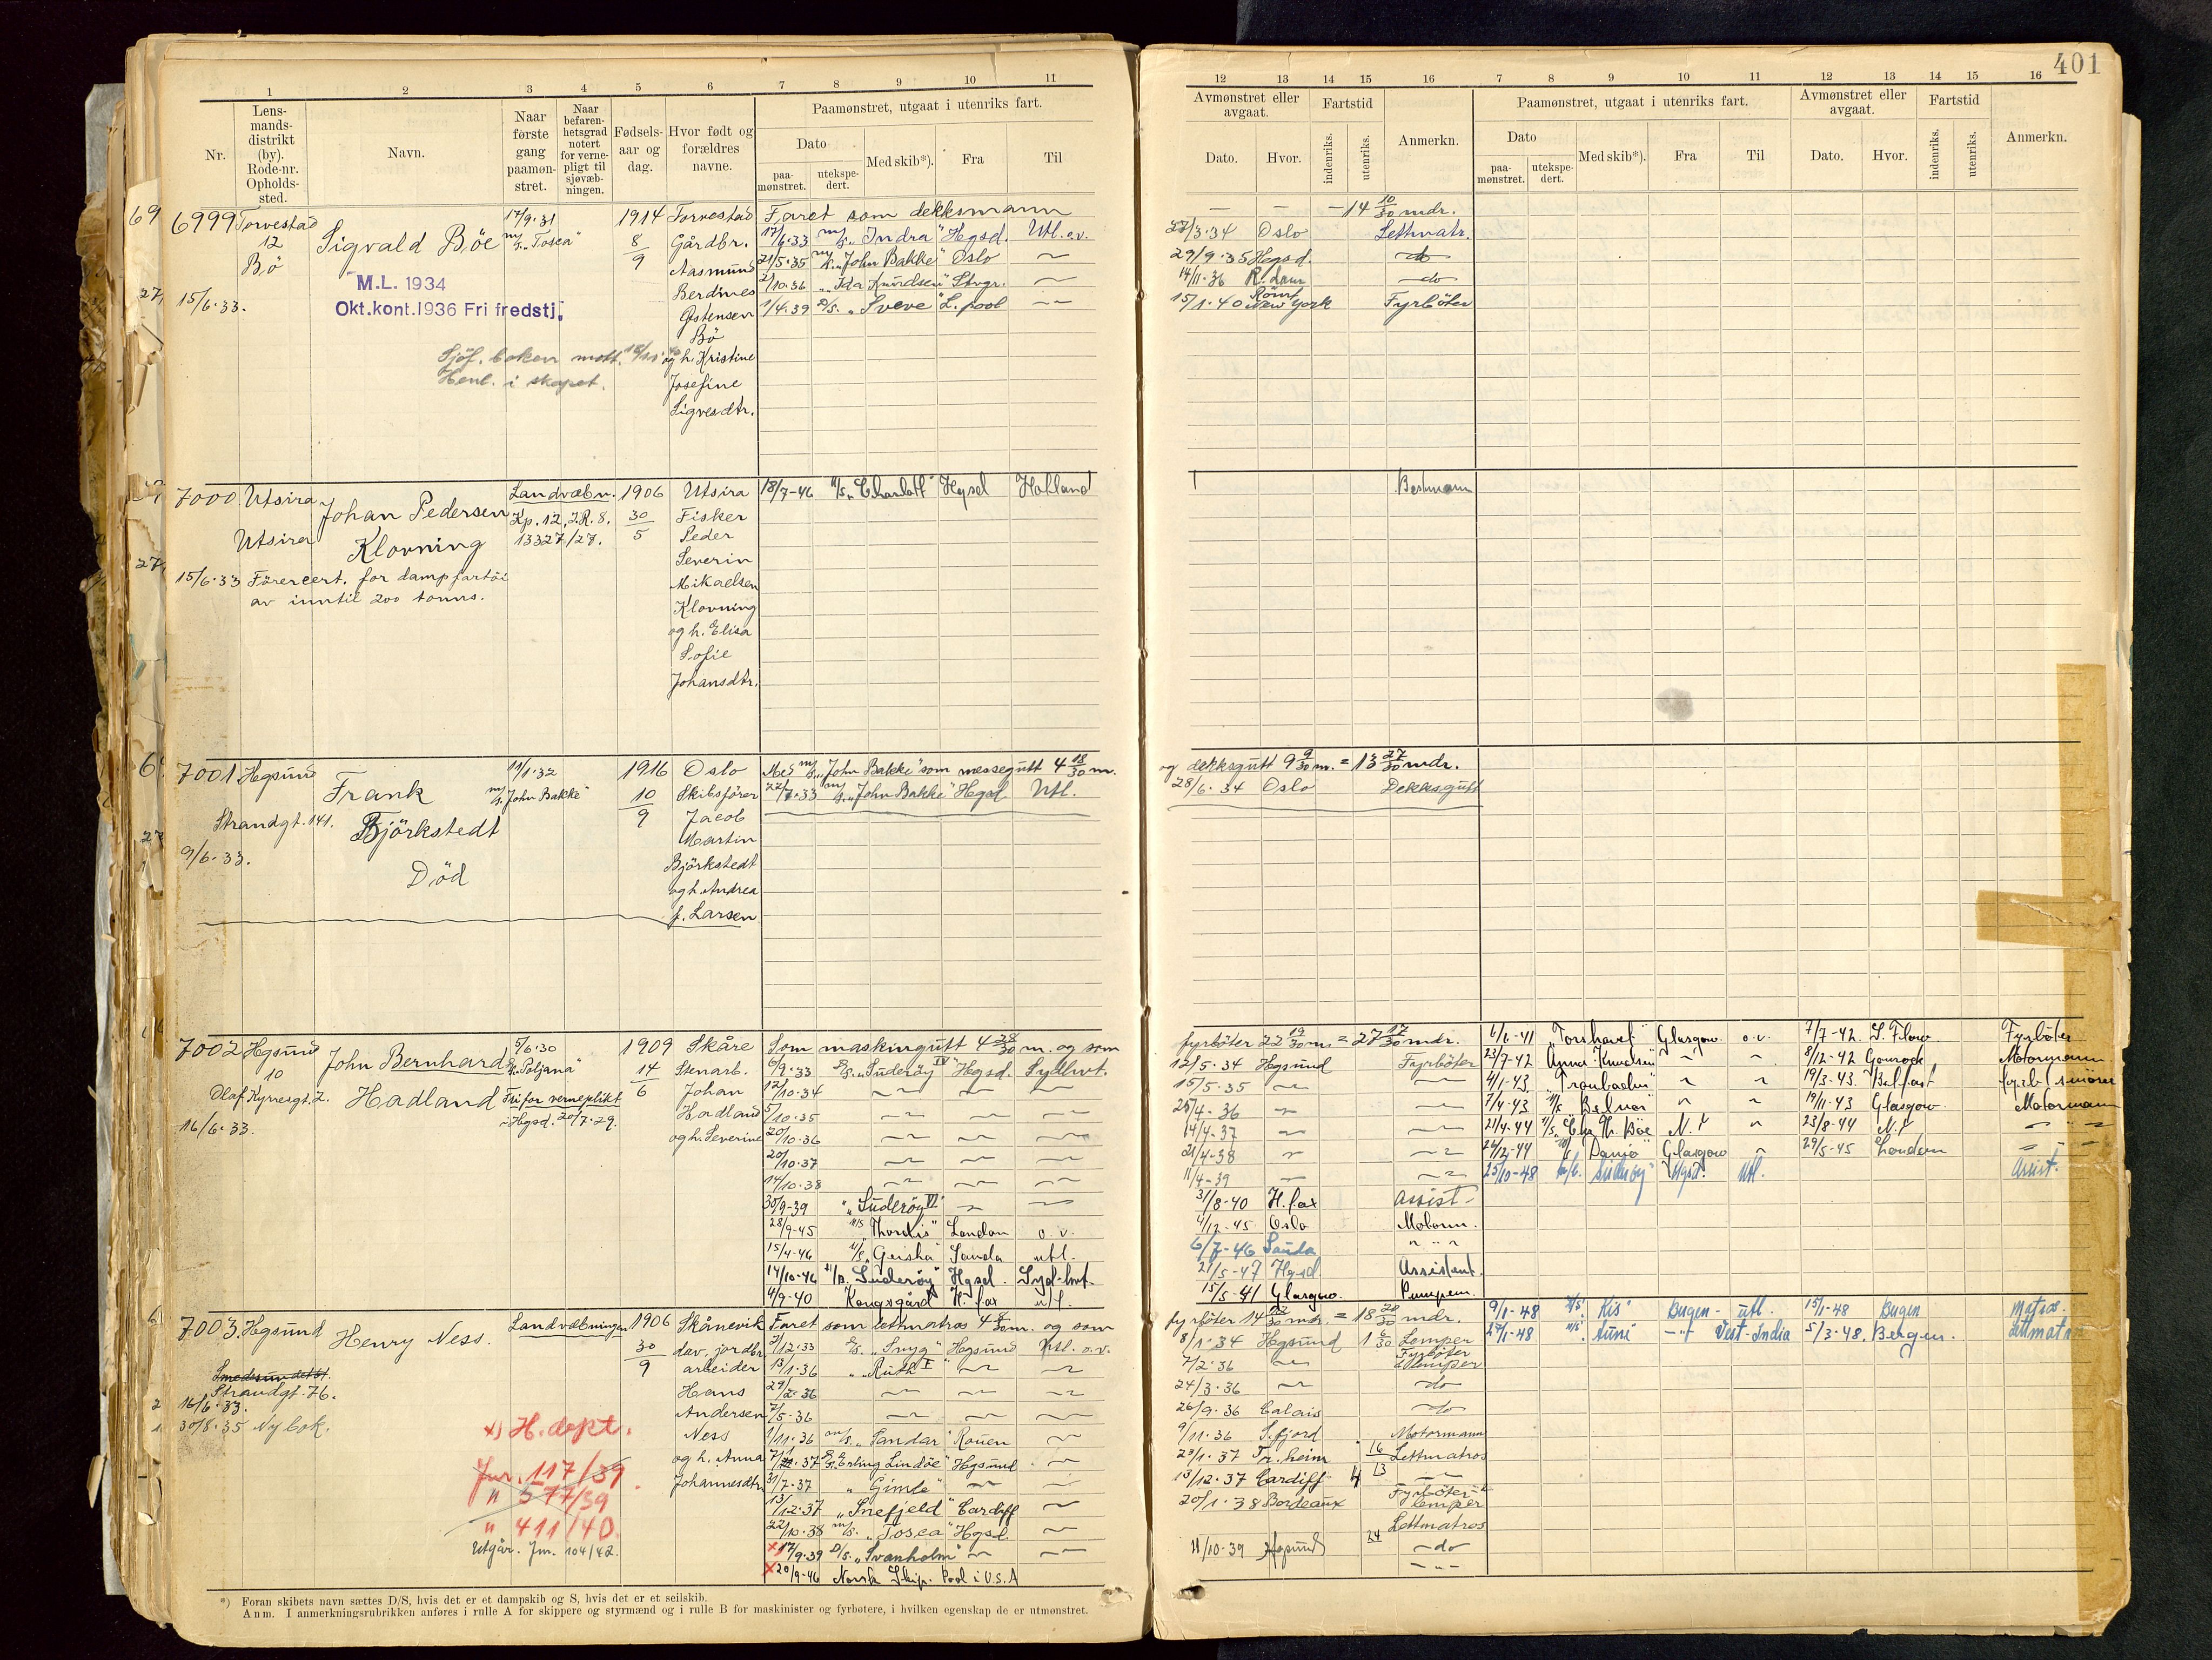 401
1 2 3 4 5 6 7 8 9 10 11
12 13 14 15 16 7 8 9 10 11 12 13 14 15 16
Nr.
Lens-
mands-
distrikt
(by).
Rode-nr.
Opholds-
sted.
Navn.
Naar
første
gang
paamøn-
stret.
Naar
befaren-
hetsgrad
notert
for verne-
pligt til
sjøvæb-
ningen.
Fødsels-
aar og
dag.
Hvor født og
forældres
navne.
Paamønstret, utgaat i utenriks fart.
Dato
paa-
mønstret.
utekspe-
dert.
Med skib*).
Fra
Til
Avmønstret eller
avgaat.
Dato.
Hvor.
Fartstid
indenriks.
utenriks.
Anmerkn.
Paamønstret, utgaat i utenriks fart.
Dato
paa-
mønstret.
utekspe-
dert.
Med skib*).
Fra
Til
Avmønstret eller
avgaat.
Dato.
Hvor.
Fartstid
indenriks.
utenriks.
Anmerkn.
6999 Torvestad
12
Bö
15/6.33.
Sigvald Böe
M.L. 1934
Okt.kont.1936 Fri fredstj.
Sjöf. boken mott.
Henl. i skapet.
17/9.31
m/s. "Tosca"
1914
8
9
Torvestad
Gårdbr.
Aasmund
Berdines
Östensen
Bö
og h. Kristine
Josefine
Sigvesdtr.
Faret som dekksmann
— — — 14 10/30 mdr.
17/6.33 m/s. "Indra" Hgsd. Utl. o.v.
Oslo Lettmatr.
21/5.35 m/s. "John Bakke" Oslo ~
29/9.35 Hgsd do
2/10.36 " Ida Knudsen" Stvgr. ~
14/11.36 do
1/4.39 D/S. "Sveve" L.pool ~
15/1.40 New York Fyrböter
7000 Utsira
Utsira
Johan Pedersen
Klovning
15/6.33 Förercert. for dampfartöi
av inntil 200 tonns.
Landvæbn.
Kp. 12, I.R. 8.
13327/27.
1906
30
5
Utsira
Fisker
Peder
Severin
Mikaelsen
Klovning
og h. Elisa
Sofie
Johansdtr.
18/7-46 M/S. "Charlott" Hgsd Holland
Bestmann
7001 Hgsund
Strandgt. 141.
9/6.33.
Frank
Björkstedt
Död
11/1.32
m/s. "John Bakke"
1916
10
9
Oslo
Skibsförer
Jacob
Martin
Björkstedt
og h. Andrea
f. Larsen
Med m/s. "John Bakke" som messegutt 4 18/30 m.
og dekksgutt 9 9/30 m. = 13 27/30 mdr.
22/7.33 m/s. "John Bakke" Hgsd Utl.
28/6.34 Oslo Dekksgutt
7002 Hgsund
10
Olaf Kyrresgt. 2.
16/6.33.
John Bernhard
Hadland
5/6.30
S/S. "Poljana"
Fri for verneplikt
Hgsd. 20/7.29.
1909
14
6
Skåre
Stenarb.
Johan
Hadland
og h. Severine
Som maskingutt 4 28/30 m. og som
fyrböter 22 19/30 m. = 27 17/30 mdr.
6/9.33 S/S. "Suderöy IV" Hgsd. Sydhvt.
12/5.34 Hgsund Fyrböter
12/10.34 ~ ~ ~
15/5.35 ~ ~
5/10.35 ~ ~ ~
25/4-36 ~ ~
20/10.36 ~ ~ ~
14/4-37 ~ ~
20/10.37 ~ ~ ~
21/4-38 ~ ~
14/10.38 ~ ~ ~
11/4-39 ~ ~
30/9-39 "Suderöy VI" ~ ~
31/8-40 H.fax Assist.
28/9-45 M/S "Thordis" London o.v.
4/12-45 Oslo Motorm.
15/4-46 M/S "Geisha" Sauda utl.
6/7-46 Sauda " " "
14/10-46 "Suderöy" Hgsd. Syd-hvt.
21/5-47 Hgsd Assistent.
4/9-40 "Kongsgård" H.fax utl.
15/5-41 Glasgow. Pumpem.
6/6-41 "Torshavet" Glasgow. o.v. 7/7-42 S. Flow Fyrböter
23/7-42 Anna Knudsen " " 8/12-42 Gourock Motormann
4/1-43 " " 19/3-43. Belfast
7/4-43 M/S Belnor " " 19/11-43 Glasgow. Motormann
21/4-44 M/S. "Chr. Th. Boe N.Y " 23/8-44 N.Y " " "
Glasgow " 29/5-45 London
25/10-48 "Suderöy" Hgsd. Utl. Assist.
7003. Hgsund
Strandgt. 76.
16/6.33.
30/8.35 Ny bok.
Henry Ness.
Landvæbningen
x) H. dept.
Jnr. 117/39
" 577/39
" 411/40.
Utgår. Jnr. 104/42.
1906
30
9
Skånevik
dav. jordbr.
arbeider
Hans
Andersen
Ness
og h. Anna
Johannesdtr.
Faret som lettmatros 4 8/30 m. og som
fyrböter 14 mdr. = 18 28/30 mdr.
7/12.33 S/S. "Snyg" Hgsund Utl. o.v.
8/1.34 Hgsund 1 Lemper
13/1.36 " "Ruth I" ~ ~
7/2.36 ~ Fyrböter Lemper
29/2.36 ~ ~ ~
24/3.36 ~ do
7/5.36 ~ ~ ~
26/9.36 Calais do
1/11.36 m/s. "Sandar" Rouen ~
9/11.36 S.fjord Motormann
S/S. "Erling Lindöe" Hgsund
Tr.heim 16 Lettmatros
31/7-37 " Gimle" ~ ~
13/12.37 Cardiff 4 13 ~
13/12.37 "Snefjeld" Cardiff ~
20/1.38 Bordeaux Fyrböter lemper
22/10.38 m/s. "Tosca" Hgsd. ~
Lettmatros
x 17/9.39 D/S. "Svanholm" ~ ~
11/10.39 Hgsund 24 do
x 20/9-46 Norsk Skip. Pool i U.S.A
9/1-48 "Kis" Bergen - utl. 15/1-48 Bergen Matros.
"Auni" -"- Vest-India 5/3-48. Bergen. Lettmatros
*) Foran skibets navn sættes D/S, hvis det er et dampskib og S, hvis det er et seilskib.
Anm. I anmerkningsrubrikken anføres i rulle A for skippere og styrmænd og i rulle B for maskinister og fyrbøtere, i hvilken egenskap de er utmønstret.